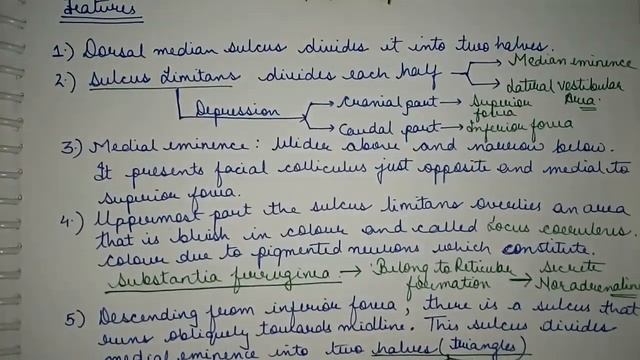 features
1.) Dorsal median sulcus divides it into two halves.
2.) Sulcus Limitans divides each half → Median eminence
→ Lateral vestibular Area.
Depression → Cranial part → Superior fovea
→ Caudal part → Inferior fovea
3.) Medial eminence: Wider above and narrow below.
It presents facial colliculus just opposite and medial to
superior fovea.
4.) Uppermost part the sulcus limitans overlies an area
that is bluish in colour and called Locus coeruleus.
colour due to pigmented neurons which constitute.
Substantia ferruginea → Belong to Reticular formation → secrete Noradrenaline
5) Descending from inferior fovea, there is a sulcus that
runs obliquely towards midline. This sulcus divides
medial eminence into two halves (triangles)